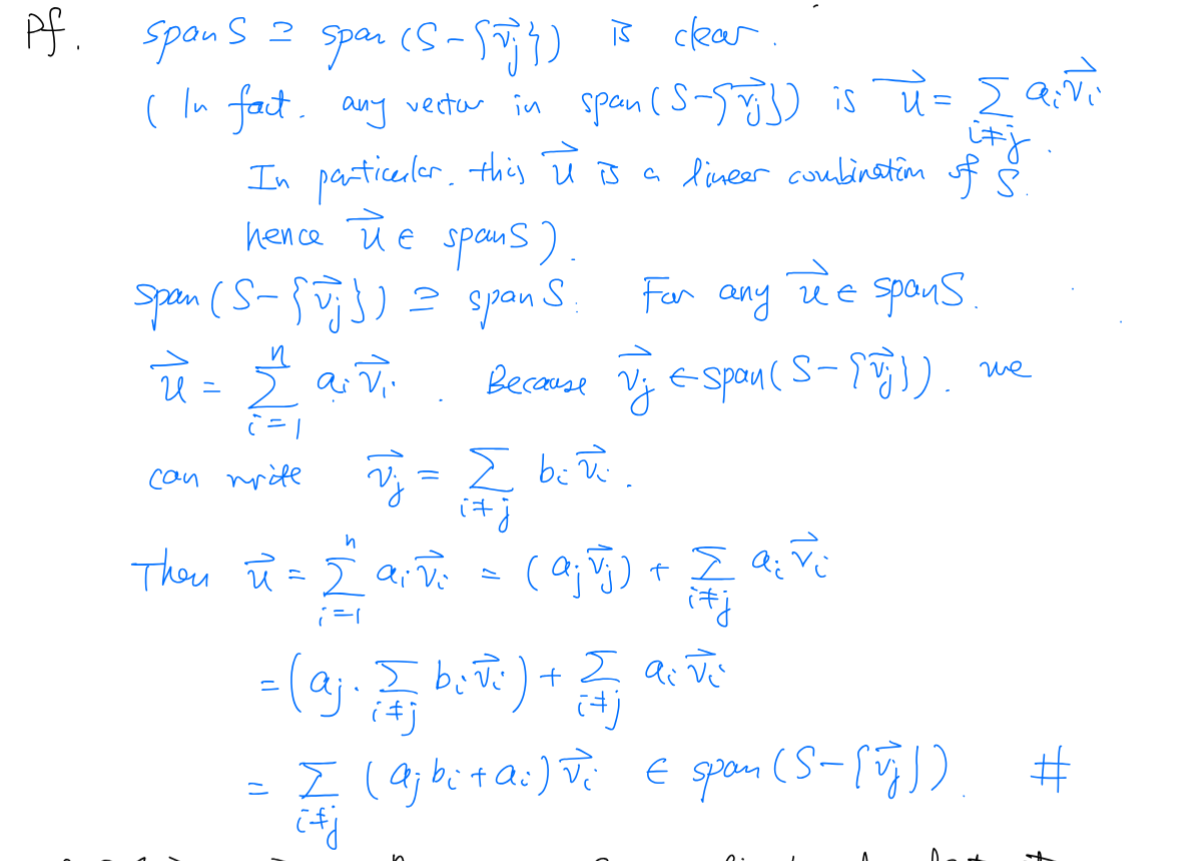 Pf. span S ⊇ span (S - {v⃗_j}) is clear.
( In fact. any vector in span (S - {v⃗_j}) is u⃗ = ∑_{i≠j} a_i v⃗_i.
In particular. this u⃗ is a linear combination of S.
hence u⃗ ∈ span S ).
span (S - {v⃗_j}) ⊇ span S: For any u⃗ ∈ span S.
u⃗ = ∑_{i=1}^{n} a_i v⃗_i. Because v⃗_j ∈ span (S - {v⃗_j}). we
can write v⃗_j = ∑_{i≠j} b_i v⃗_i.
Then u⃗ = ∑_{i=1}^{n} a_i v⃗_i = (a_j v⃗_j) + ∑_{i≠j} a_i v⃗_i
= (a_j · ∑_{i≠j} b_i v⃗_i) + ∑_{i≠j} a_i v⃗_i
= ∑_{i≠j} (a_j b_i + a_i) v⃗_i ∈ span (S - {v⃗_j}). #